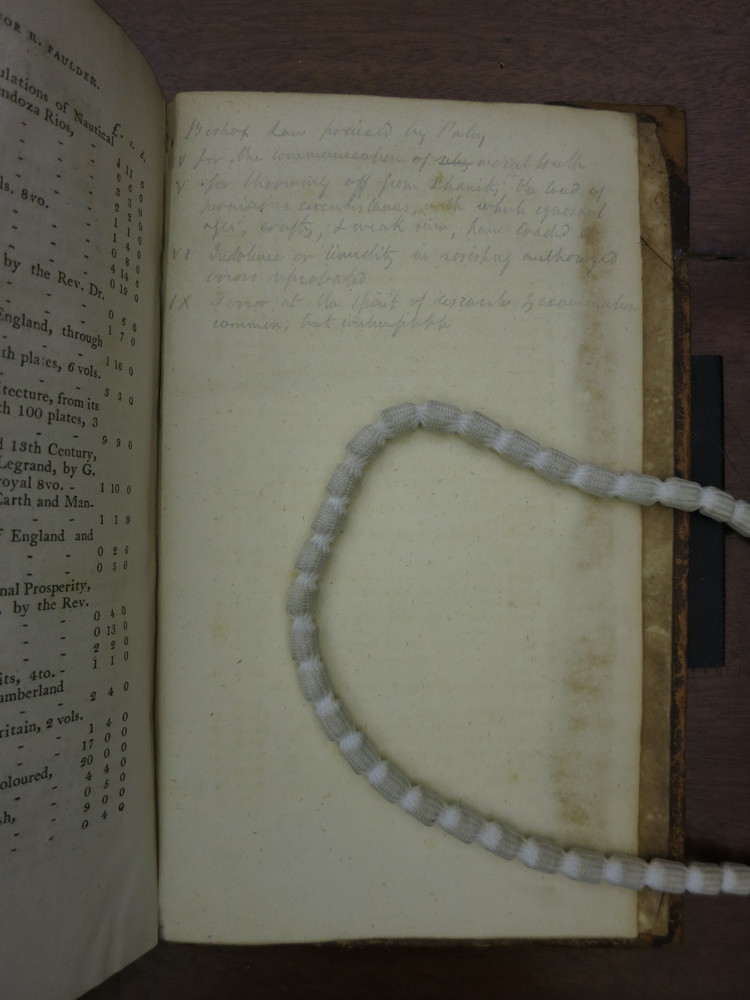 FOR R. FAULDER.
£. s. d.
ulations of Nautical
endoza Rios, - 1 11 6
ls. 8vo.
by the Rev. Dr.
0 6 0
England, through
1 7 0
th plates, 6 vols.
1 16 0
3 3 0
itecture, from its
th 100 plates, 3
9 9 0
d 13th Century,
Legrand, by G.
royal 8vo. - 1 10 0
Earth and Man-
1 1 0
f England and
0 2 6
0 5 0
nal Prosperity,
, by the Rev.
0 4 0
0 13 0
2 2 0
1 1 0
its, 4to. -
umberland
2 4 0
ritain, 2 vols.
1 4 0
17 0 0
20 0 0
oloured, 4 4 0
0 5 0
h, 9 0 0
0 4 0
Bishop Law praised by Paley
V for the communication of moral truth
V for throwing off from Christianity the load of
pernicious circumstances, with which
ages, crafty, & weak men, have loaded it
VI Indolence or timidity in resisting authorized
errors reprobated
IX Terror at the spirit of research & examination
common, but contemptible